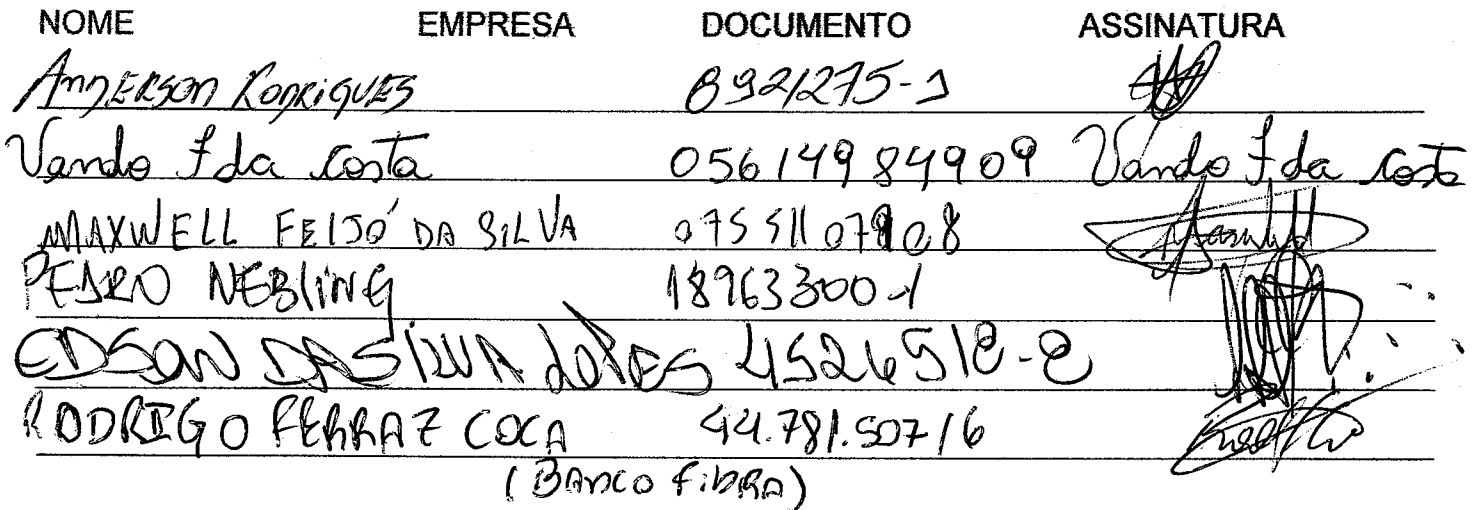 NOME EMPRESA DOCUMENTO ASSINATURA
ANDERSON RODRIGUES 8921275-1
Vando F da Costa 05614984909 Vando F da Costa
MAXWELL FEIJÓ DA SILVA 07551107908
PEDRO NEBLING 18963300-1
EDSON DA SILVA LOPES 4526518-8
RODRIGO FERRAZ COCA 44.781.507/6
(BANCO FIBRA)